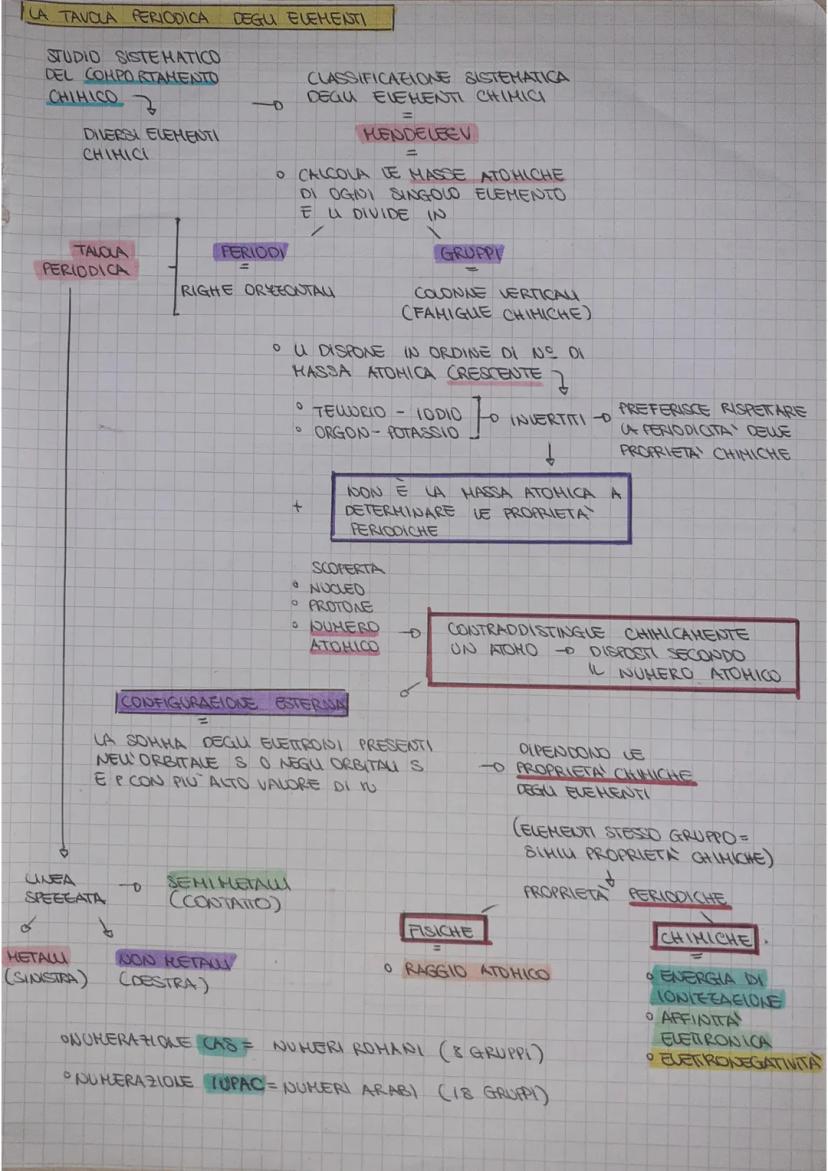 LA TAVOLA PERIODICA DEGLI ELEMENTI
STUDIO SISTEMATICO
DEL COMPORTAMENTO
CHIMICO
DIVERSI ELEMENTI
CHIMICI
CLASSIFICAZIONE SISTEMATICA
DEGLI ELEMENTI CHIMICI
=
MENDELEEV
=
CALCOLA LE MASSE ATOMICHE
DI OGNI SINGOLO ELEMENTO
E LI DIVIDE IN
TAVOLA
PERIODICA
PERIODI
=
RIGHE ORIZZONTALI
GRUPPI
=
COLONNE VERTICALI
(FAMIGLIE CHIMICHE)
LI DISPONE IN ORDINE DI N° DI
MASSA ATOMICA CRESCENTE
TELLURIO - IODIO
ORGON - POTASSIO
INVERTITI
PREFERISCE RISPETTARE
LA PERIODICITA' DELLE
PROPRIETA' CHIMICHE
+
NON È LA MASSA ATOMICA A
DETERMINARE LE PROPRIETA'
PERIODICHE
SCOPERTA
NUCLEO
PROTONE
NUMERO
ATOMICO
CONTRADDISTINGUE CHIMICAMENTE
UN ATOMO → DISPOSTI SECONDO
IL NUMERO ATOMICO
CONFIGURAZIONE ESTERNA
=
LA SOMMA DEGLI ELETTRONI PRESENTI
NELL'ORBITALE S O NEGLI ORBITALI S
E P CON PIU' ALTO VALORE DI N
DIPENDONO LE
PROPRIETA' CHIMICHE
DEGLI ELEMENTI
(ELEMENTI STESSO GRUPPO =
SIMILI PROPRIETA' CHIMICHE)
PROPRIETA' PERIODICHE
LINEA
SPEZZATA
SEMIMETALLI
(CONTATTO)
METALLI
(SINISTRA)
NON METALLI
(DESTRA)
FISICHE
=
RAGGIO ATOMICO
CHIMICHE
=
ENERGIA DI
IONIZZAZIONE
AFFINITA'
ELETTRONICA
ELETTRONEGATIVITA'
NUMERAZIONE CAS = NUMERI ROMANI (8 GRUPPI)
NUMERAZIONE IUPAC = NUMERI ARABI (18 GRUPPI)